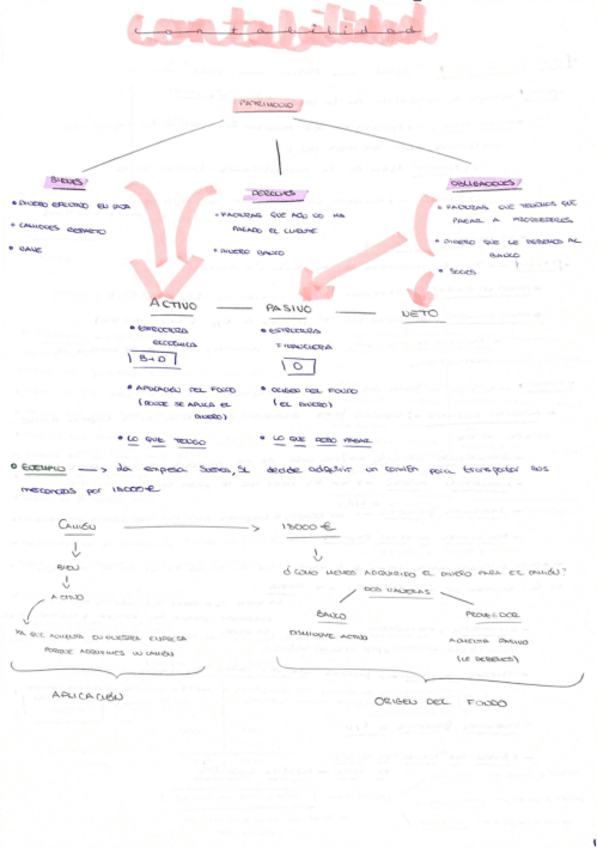 contabilidad
PATRIMONIO
BIENES
DERECHOS
OBLIGACIONES
• DINERO EFECTIVO EN CAJA
• CAMIONES REPARTO
• NAVE
• FACTURAS QUE AÚN NO HA
PAGADO EL CLIENTE
• DINERO BANCO
• FACTURAS QUE TENEMOS QUE
PAGAR A PROVEEDORES
• DINERO QUE LE DEBEMOS AL
BANCO
• SOCIOS
ACTIVO — PASIVO — NETO
• ESTRUCTURA
ECONÓMICA
B+D
• APLICACIÓN DEL FONDO
(DONDE SE APLICA EL
DINERO)
• LO QUE TENGO
• ESTRUCTURA
FINANCIERA
O
• ORIGEN DEL FONDO
(EL DINERO)
• LO QUE DEBO PAGAR
• EJEMPLO → La empresa SL decide adquirir un camión para transportar sus
mercancías por 18000€
CAMIÓN → 18000€
↓
BIEN
↓
ACTIVO
YA QUE AUMENTA EN NUESTRA EMPRESA
PORQUE ADQUIRIMOS UN CAMIÓN
APLICACIÓN
↓
¿CÓMO HEMOS ADQUIRIDO EL DINERO PARA EL CAMIÓN?
DOS MANERAS
BANCO
DISMINUYE ACTIVO
PROVEEDOR
AUMENTA PASIVO
(LE DEBEMOS)
ORIGEN DEL FONDO
1